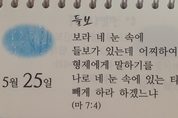 들보
보라 네 눈 속에
들보가 있는데 어찌하여
형제에게 말하기를
나로 네 눈 속에 있는 티
빼게 하라 하겠느냐
(마 7:4)
5월 25일